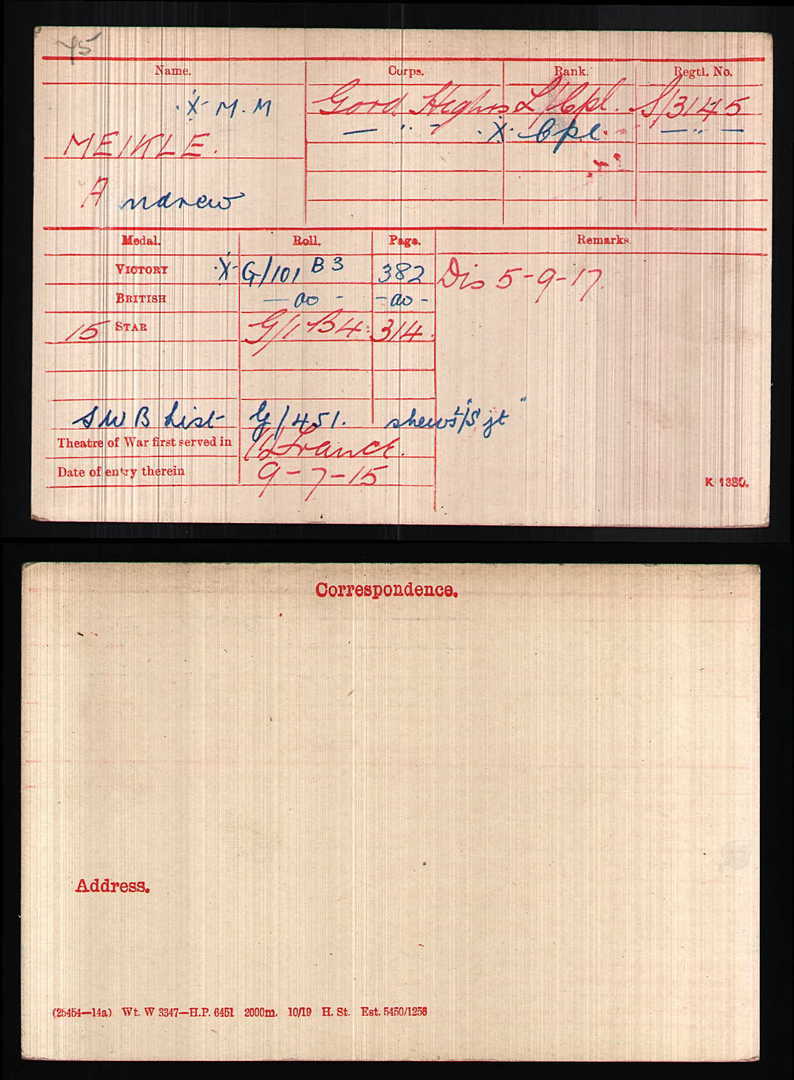 45
Name. Corps. Rank. Regtl. No.
·X· M.M Gord Highrs L/Cpl. S/3145
MEIKLE. — " — ·X· Cpl. — " —
Andrew
Medal. Roll. Page. Remarks.
VICTORY ·X· G/101 B3 382 Dis 5-9-17.
BRITISH — do - - do -
15 STAR G/1 B4 314.
SWB List G/451. shews "L/Sjt"
Theatre of War first served in (1) France.
Date of entry therein 9-7-15
K 1380.
Correspondence.
Address.
(25454—14a) Wt. W 3347—H.P. 6451 2000m. 10/19 H. St. Est. 5450/1256